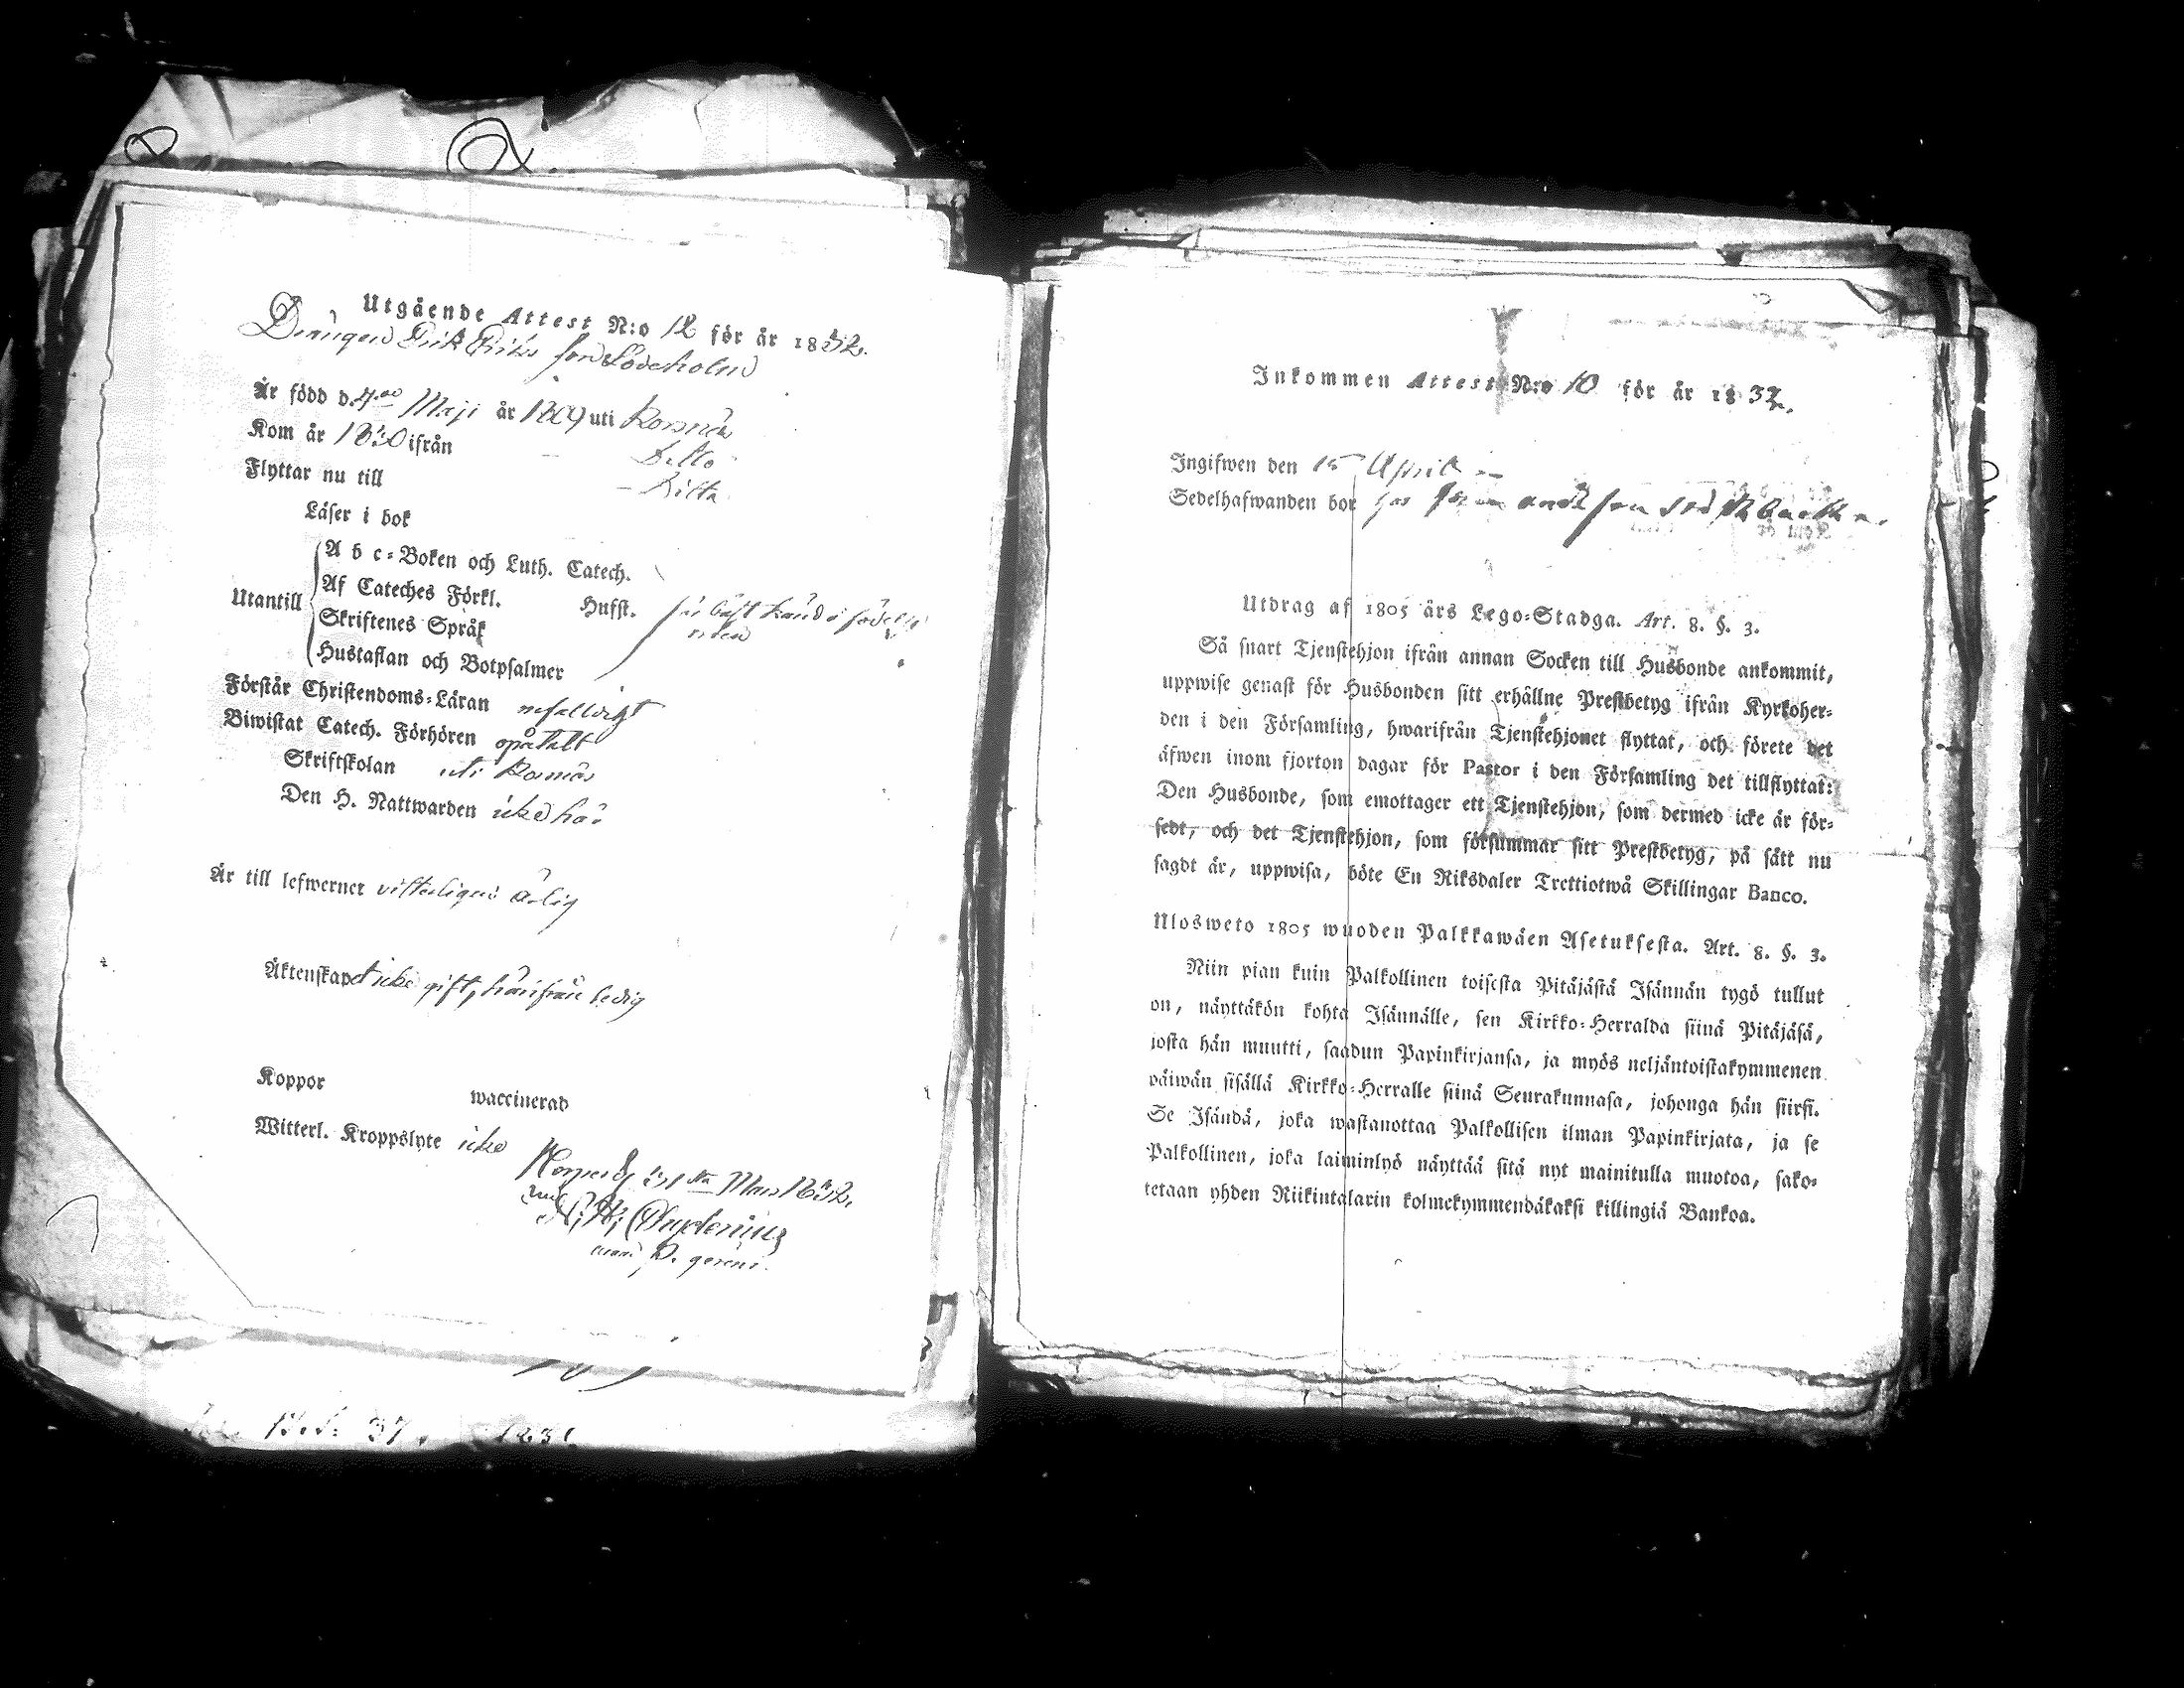 Utgående Attest N:o 12 för år 1832.
Drängen Erik Eriks son Söderholm
Är född d. 4de Maji år 1809 uti Korsnäs
Kom år 1830 ifrån Ditto
Flyttar nu till Ditto
Läser i bok
A b c-Boken och Luth. Catech.
Utantill
Af Cateches Förkl. Husst.
Skriftenes Språk
Hustaflan och Botpsalmer
Förstår Christendoms-Läran
Biwistat Catech. Förhören
Skriftskolan uti Korsnäs
Den H. Nattwarden icke här
Är till lefwernet ärlig
Äktenskapet icke gift, härifrån ledig
Koppor waccinerad
Witterl. Kroppslyte icke
Mars 1832.
Inkommen Attest N:o 10 för år 1832.
Ingifwen den 15 April
Sedelhafwanden bor hos
Utdrag af 1805 års Lego-Stadga. Art. 8. §. 3.
Så snart Tjenstehjon ifrån annan Socken till Husbonde ankommit,
uppwise genast för Husbonden sitt erhållne Prestbetyg ifrån Kyrkoher-
den i den Församling, hwarifrån Tjenstehjonet flyttat, och förete det
äfwen inom fjorton dagar för Pastor i den Församling det tillflyttat:
Den Husbonde, som emottager ett Tjenstehjon, som dermed icke är för-
sedt, och det Tjenstehjon, som försummar sitt Prestbetyg, på sätt nu
sagdt är, uppwisa, böte En Riksdaler Trettiotwå Skillingar Banco.
Ulosweto 1805 wuoden Palkkawäen Asetuksesta. Art. 8. §. 3.
Niin pian kuin Palkollinen toisesta Pitäjästä Isännän tygö tullut
on, näyttäkön kohta Isännälle, sen Kirkko-Herralda siinä Pitäjäsä,
josta hän muutti, saadun Papinkirjansa, ja myös neljäntoistakymmenen
päiwän sisällä Kirkko-Herralle siinä Seurakunnasa, johonga hän siirsi.
Se Isändä, joka wastanottaa Palkollisen ilman Papinkirjata, ja se
Palkollinen, joka laiminlyö näyttää sitä nyt mainitulla muotoa, sako-
tetaan yhden Riikintalarin kolmekymmendäkaksi killingiä Bankoa.